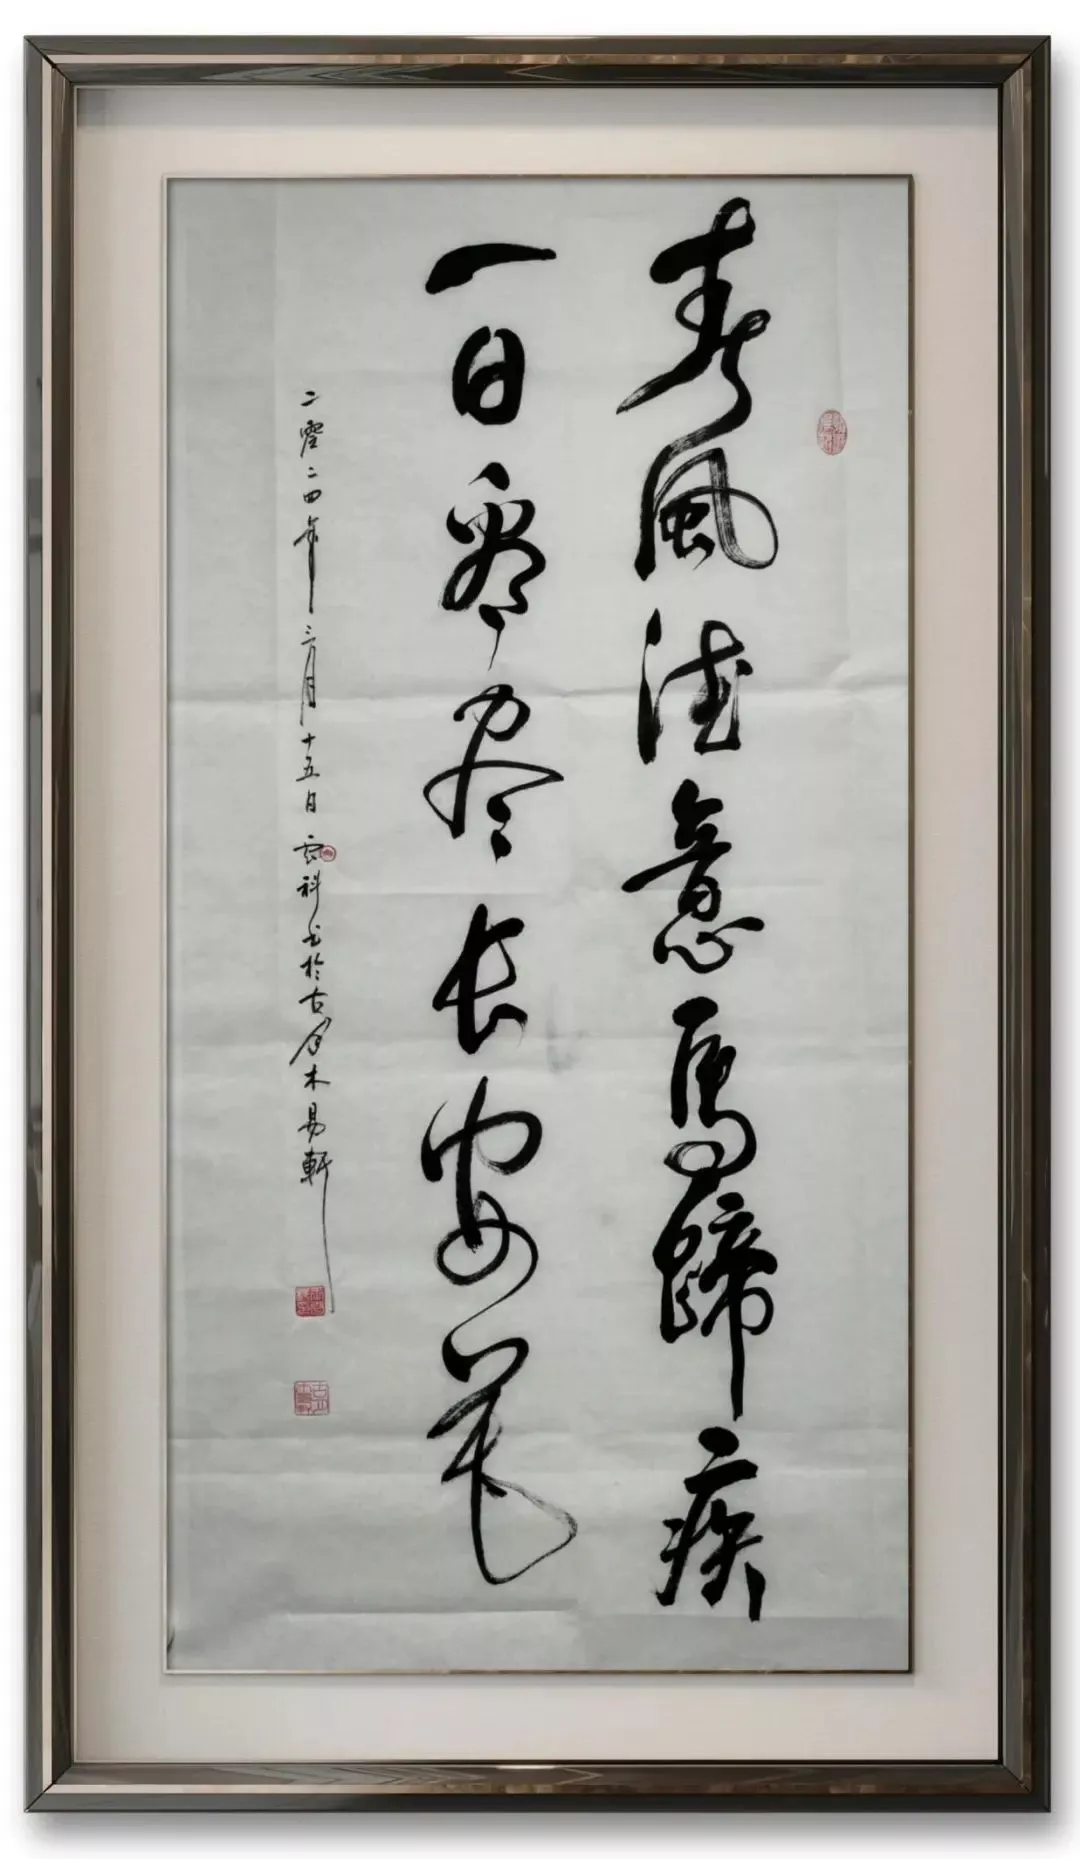 春風得意馬蹄疾
一日看尽长安花
二零二四年三月十五日云科书於古月木易軒